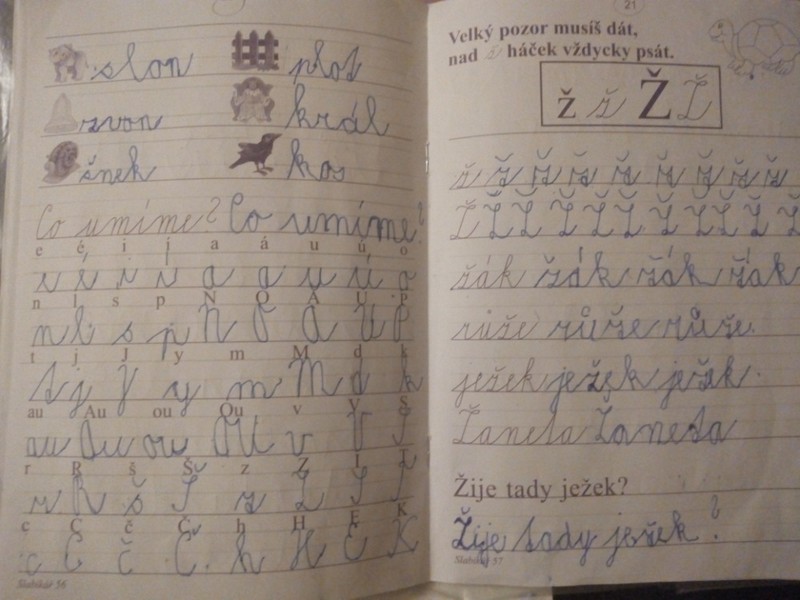 slon plot
zvon král
šnek kos
Co umíme? Co umíme?
e é i j a á u ú o
e é i j a á u ú o
n l s p N O A U P
n l s p N O A U P
t j J y m M d k
t j J y m M d k
au Au ou Ou v V S
au Au ou Ou v V S
r R š Š z Z I T
r R š Š z Z I T
c C č Č h H E K
c C č Č h H E K
Slabikář 56
21
Velký pozor musíš dát,
nad ž háček vždycky psát.
ž ž Ž Ž
ž ž ž ž ž ž ž ž ž
Ž Ž Ž Ž Ž Ž Ž Ž Ž Ž Ž
žák žák žák žák
růže růže růže.
ježek ježek ježek.
Žaneta Žaneta
Žije tady ježek?
Žije tady ježek?
Slabikář 57